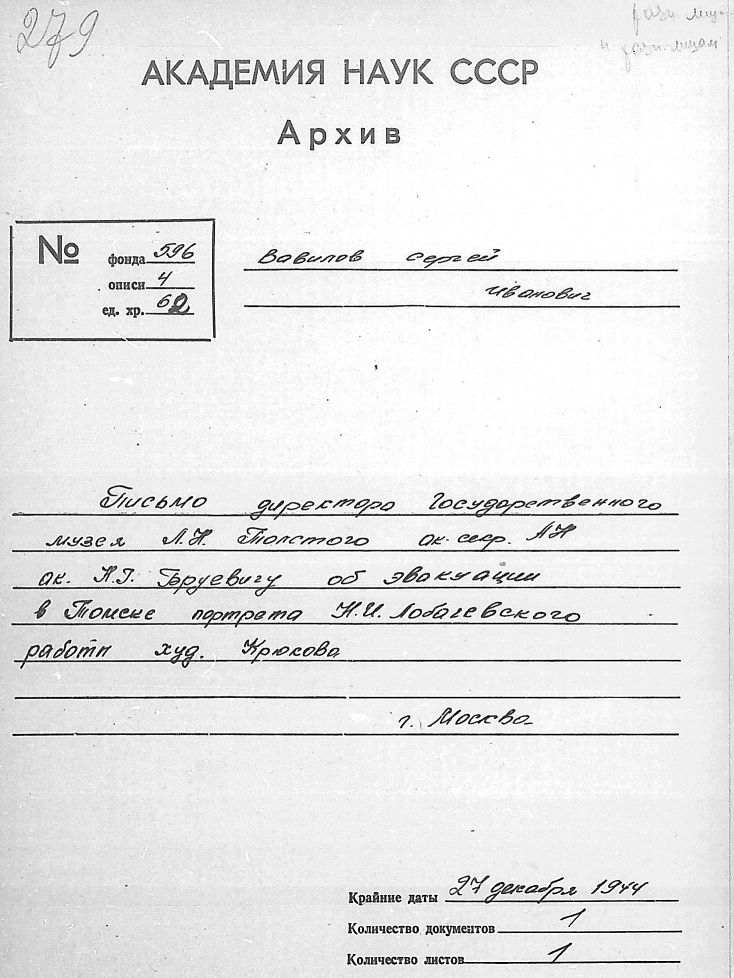 279
АКАДЕМИЯ НАУК СССР
Архив
№
фонда 596
описи 4
ед. хр. 62
Вавилов Сергей
Иванович
Письмо директора Государственного
музея Л.Н. Толстого ак. секр. АН
ак. Н.Г. Бруевичу об эвакуации
в Томске портрета Н.И. Лобачевского
работы худ. Крюкова
г. Москва
Крайние даты 27 декабря 1944
Количество документов 1
Количество листов 1